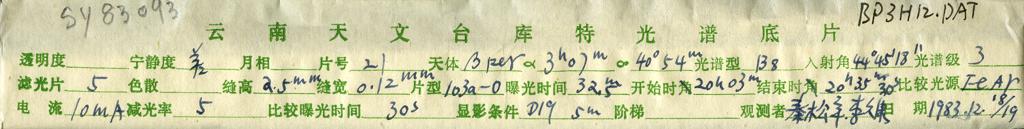 SY83093 BP3H12.DAT
云南天文台库特光谱底片
透明度 宁静度 差 月相 片号 21 天体 β per α 3h07m α 40°54m 光谱型 B8 入射角 44°45'18" 光谱级 3
滤光片 5 色散 缝高 2.5mm 缝宽 0.12mm 片型 103a-O 曝光时间 32.5m 开始时角 20h03m 结束时角 20h35m30s 比较光源 FeAr
电流 10mA 减光率 5 比较曝光时间 30s 显影条件 D19 5m 阶梯 观测者 日期 1983.12.18/19